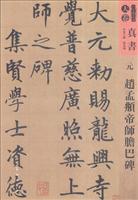 真書
元
趙孟頫帝師膽巴碑
大元勅賜龍
覺普慈廣照
之碑
集賢學士資德